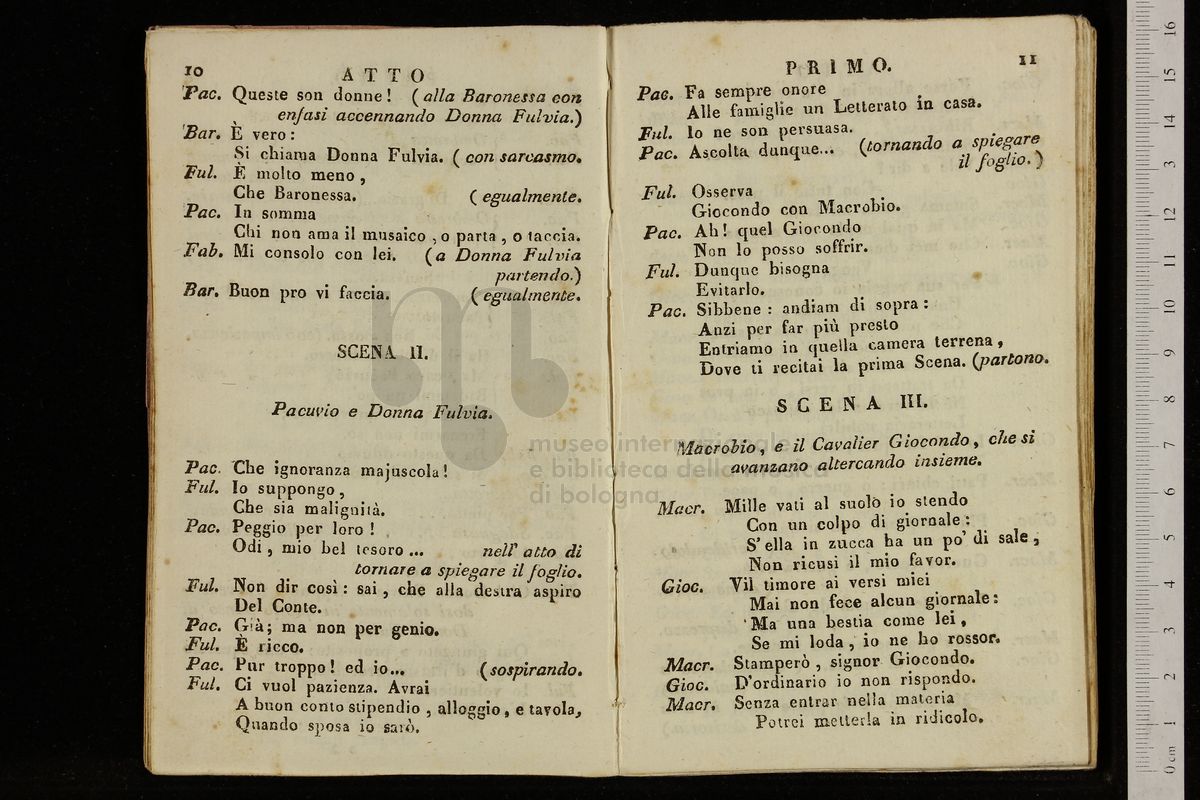 10
ATTO
Pac. Queste son donne! (alla Baronessa con
enfasi accennando Donna Fulvia.)
Bar. È vero:
Si chiama Donna Fulvia. (con sarcasmo.
Ful. È molto meno,
Che Baronessa. (egualmente.
Pac. In somma
Chi non ama il musaico, o parta, o taccia.
Fab. Mi consolo con lei. (a Donna Fulvia
partendo.)
Bar. Buon pro vi faccia. (egualmente.
SCENA II.
Pacuvio e Donna Fulvia.
Pac. Che ignoranza majuscola!
Ful. Io suppongo,
Che sia malignità.
Pac. Peggio per loro!
Odi, mio bel tesoro... nell' atto di
tornare a spiegare il foglio.
Ful. Non dir così: sai, che alla destra aspiro
Del Conte.
Pac. Già; ma non per genio.
Ful. È ricco.
Pac. Pur troppo! ed io... (sospirando.
Ful. Ci vuol pazienza. Avrai
A buon conto stipendio, alloggio, e tavola,
Quando sposa io sarò.
PRIMO.
11
Pac. Fa sempre onore
Alle famiglie un Letterato in casa.
Ful. Io ne son persuasa.
Pac. Ascolta dunque... (tornando a spiegare
il foglio.)
Ful. Osserva
Giocondo con Macrobio.
Pac. Ah! quel Giocondo
Non lo posso soffrir.
Ful. Dunque bisogna
Evitarlo.
Pac. Sibbene: andiam di sopra:
Anzi per far più presto
Entriamo in quella camera terrena,
Dove ti recitai la prima Scena. (partono.
SCENA III.
Macrobio, e il Cavalier Giocondo, che si
avanzano altercando insieme.
Macr. Mille vati al suolo io stendo
Con un colpo di giornale:
S' ella in zucca ha un po' di sale,
Non ricusi il mio favor.
Gioc. Vil timore ai versi miei
Mai non fece alcun giornale:
Ma una bestia come lei,
Se mi loda, io ne ho rossor.
Macr. Stamperò, signor Giocondo.
Gioc. D'ordinario io non rispondo.
Macr. Senza entrar nella materia
Potrei metterla in ridicolo.
museo internazionale
e biblioteca della musica
di bologna
0 cm 1 2 3 4 5 6 7 8 9 10 11 12 13 14 15 16